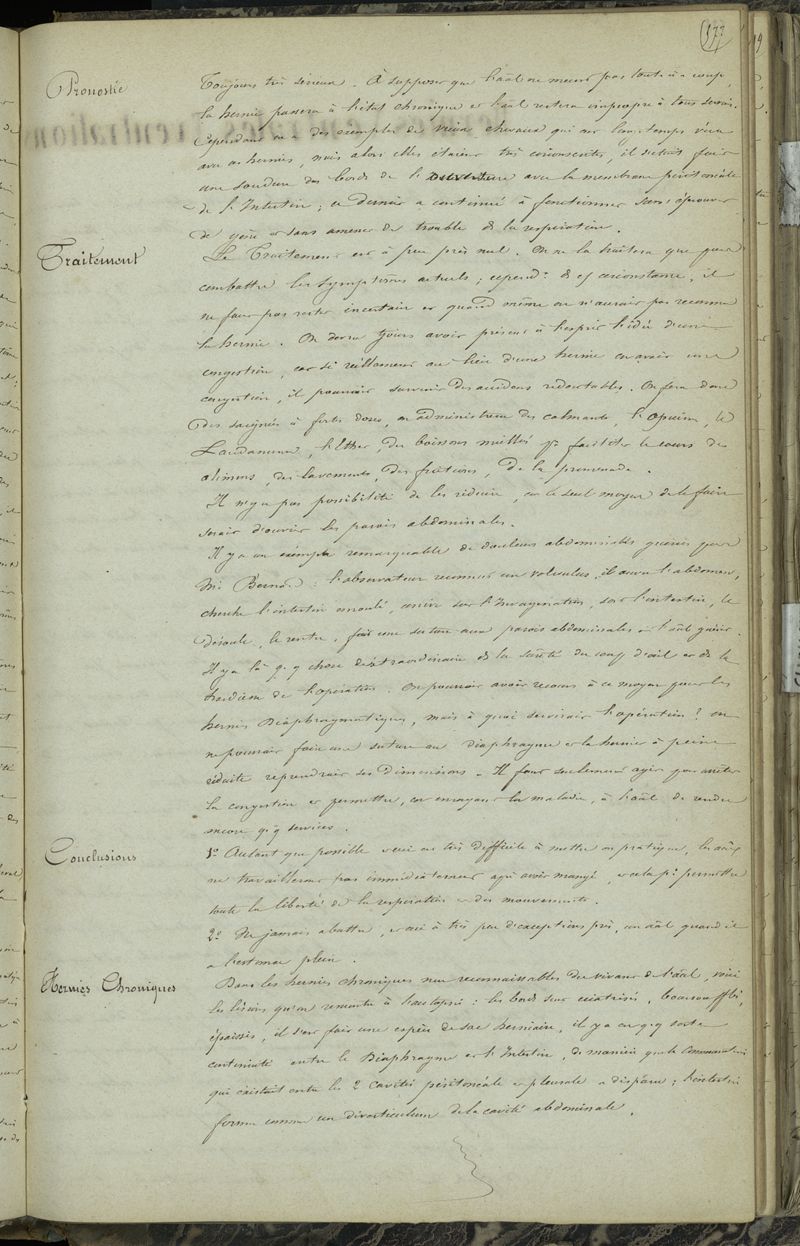 177
Pronostic
Toujours très sérieux. À supposer que l'aâl ne meure pas tout à coup,
la hernie passera à l'état chronique et l'aâl restera impropre à tous services.
Cependant on a des exemples de vieux chevaux qui ont longtemps vécu
avec ces hernies, mais alors elles étaient très circonscrites, il s'était fait
une soudure des bords de l'ouverture avec la membrane péritonéale
de l'Intestin ; ce dernier a continué à fonctionner sans éprouver
de gêne et sans amener de trouble ds la respiration.
Traitement
Le Traitement est à peu près nul. On ne la traitera que pour
combattre les symptômes actuels ; cepend.t ds ces circonstances, il
ne faut pas rester incertain et quand même on n'aurait pas reconnu
la hernie. On devra tjours avoir présent à l'esprit l'idée d'une
congestion, car si réellement au lieu d'une hernie on avait une
congestion, il pourrait survenir des accidens redoutables. On fera donc
des saignées à fortes doses, on administrera des calmants, l'opium, le
Laudanum, l'Ether, des boissons miellées pr faciliter le cours des
alimens, des lavements, des frictions, de la promenade.
Il n'y a pas possibilité de les réduire, car le seul moyen de le faire
serait d'ouvrir les parois abdominales.
Il y a un exemple remarquable de douleurs abdominales guéries par
Mr Bernard : l'observateur reconnut un volvulus, il ouvre l'abdomen,
cherche l'intestin enroulé, arrive sur l'Invagination, sort l'intestin, le
déroule, le rentre, fait une suture aux parois abdominales et l'aâl guérit.
Il y a là q.q chose d'extraordinaire ds la sûreté du coup d'œil et ds la
hardiesse de l'opération. On pourrait avoir recours à ce moyen pour les
hernies Diaphragmatiques, mais à quoi servirait l'opération ? on
ne pourrait faire une suture au diaphragme et la hernie à peine
réduite reprendrait ses dimensions. Il faut seulement agir pour arrêter
la congestion et permettre, en enrayant la maladie, à l'aâl de rendre
encore q.q services.
Conclusions
1º Autant que possible et ceci est très difficile à mettre en pratique, les aâx
ne travailleront pas immédiatement après avoir mangé, et cela pr permettre
toute la liberté de la respiration et des mouvements.
2º Ne jamais abattre, et ceci à très peu d'exceptions près, un aâl quand il
a l'estomac plein.
Hernies Chroniques
Dans les hernies chroniques non reconnaissables du vivant de l'aâl, voici
les lésions qu'on rencontre à l'autopsie : les bords sont cicatrisés, boursoufflés,
épaissis, il s'est fait une espèce de sac herniaire, il y a en q.q sorte
continuité entre le Diaphragme et l'Intestin, de manière que la Communication
qui existait entre les 2 cavités péritonéale et pleurale a disparu ; l'intestin
forme comme un diverticulum de la cavité abdominale.